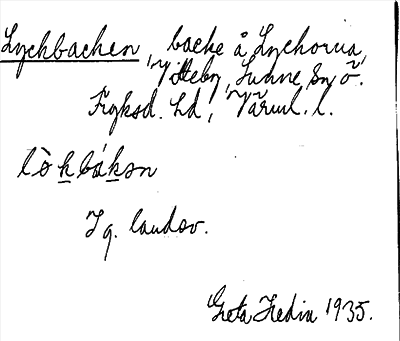 Lyckbacken, backe å Lyckorna,
Ytteby, Sunne sn ö.
Fryksd. hd, Värml. l.
lò̀kbákən
Ig. landsv.
Greta Hedin 1935.